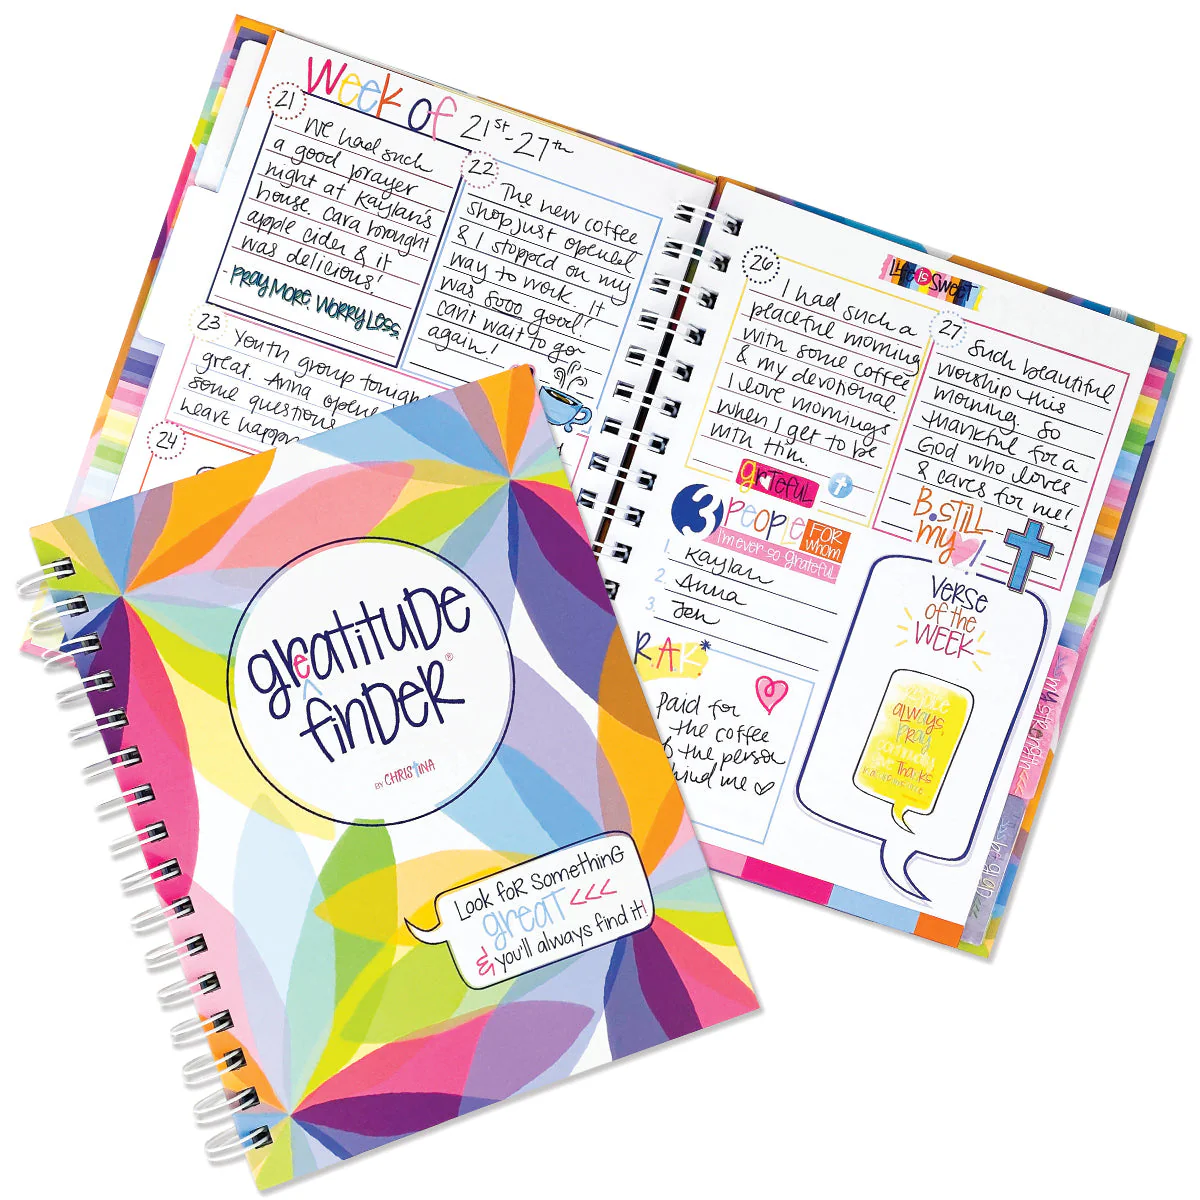 Week of 21st-27th
21
We had such
a good prayer
night at Kaylan's
house. Cara brought
apple cider & it
was delicious!
-PRAY MORE. WORRY LESS
22
The new coffee
shop just opened
& I stopped on my
way to work. It
was sooo good!
can't wait to go
again!
23
Youth group tonight
great. Anna opene
some questions
heart happ
24
26
LIFE is SWEET
I had such a
peaceful morning
with some coffee
& my devotional.
I love mornings
when I get to be
with Him.
grateful
27
Such beautiful
worship this
morning. So
thankful for a
God who loves
& cares for me!
B.STILL
my !
3 PEOPLE FOR whom
I'm ever so grateful
1. Kaylan
2. Anna
3. Jen
RAK*
Paid for
the coffee
f the person
hind me
VERSE
OF the
WEEK
ALWAYS
PRAY
THANKS
my strength
greatitude
finder®
BY CHRISTINA
Look for something
great <<<
& you'll always find it!